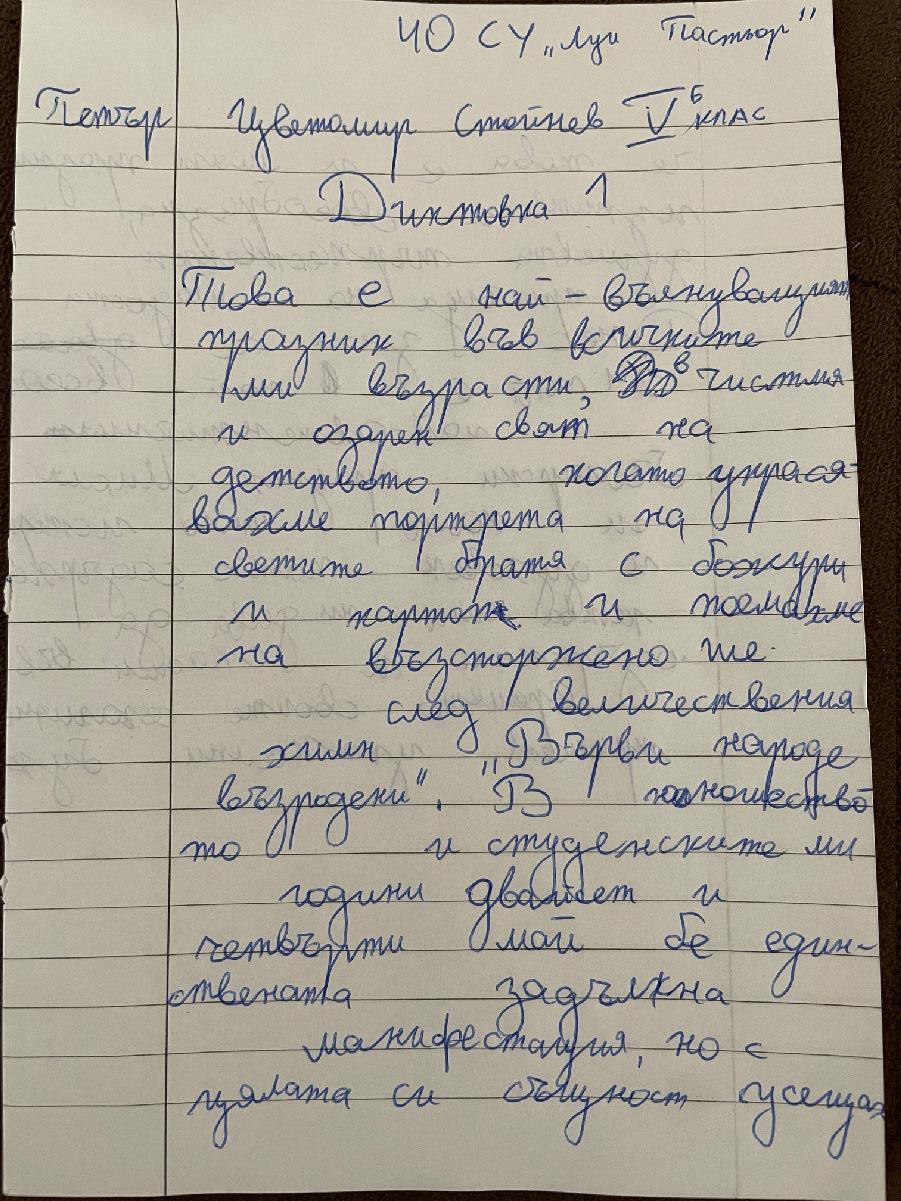 ЧО СУ „Луи Пастьор"
Петър Цветомир Стойнев V б клас
Диктовка 1
Това е най-вълнуващият
празник във всичките
ми възрасти, в чистмия
и озарен свят на
детството, когато украся-
вахме портрета на
светите братя с божури
и картон и поемахме
на възсторжено ше
след величествения
химн „Върви народе
възродени". В юношество
то и студенските ми
години двайсет и
четвърти май бе един-
ствената задължна
манифестация, но с
цялата си същност усещах